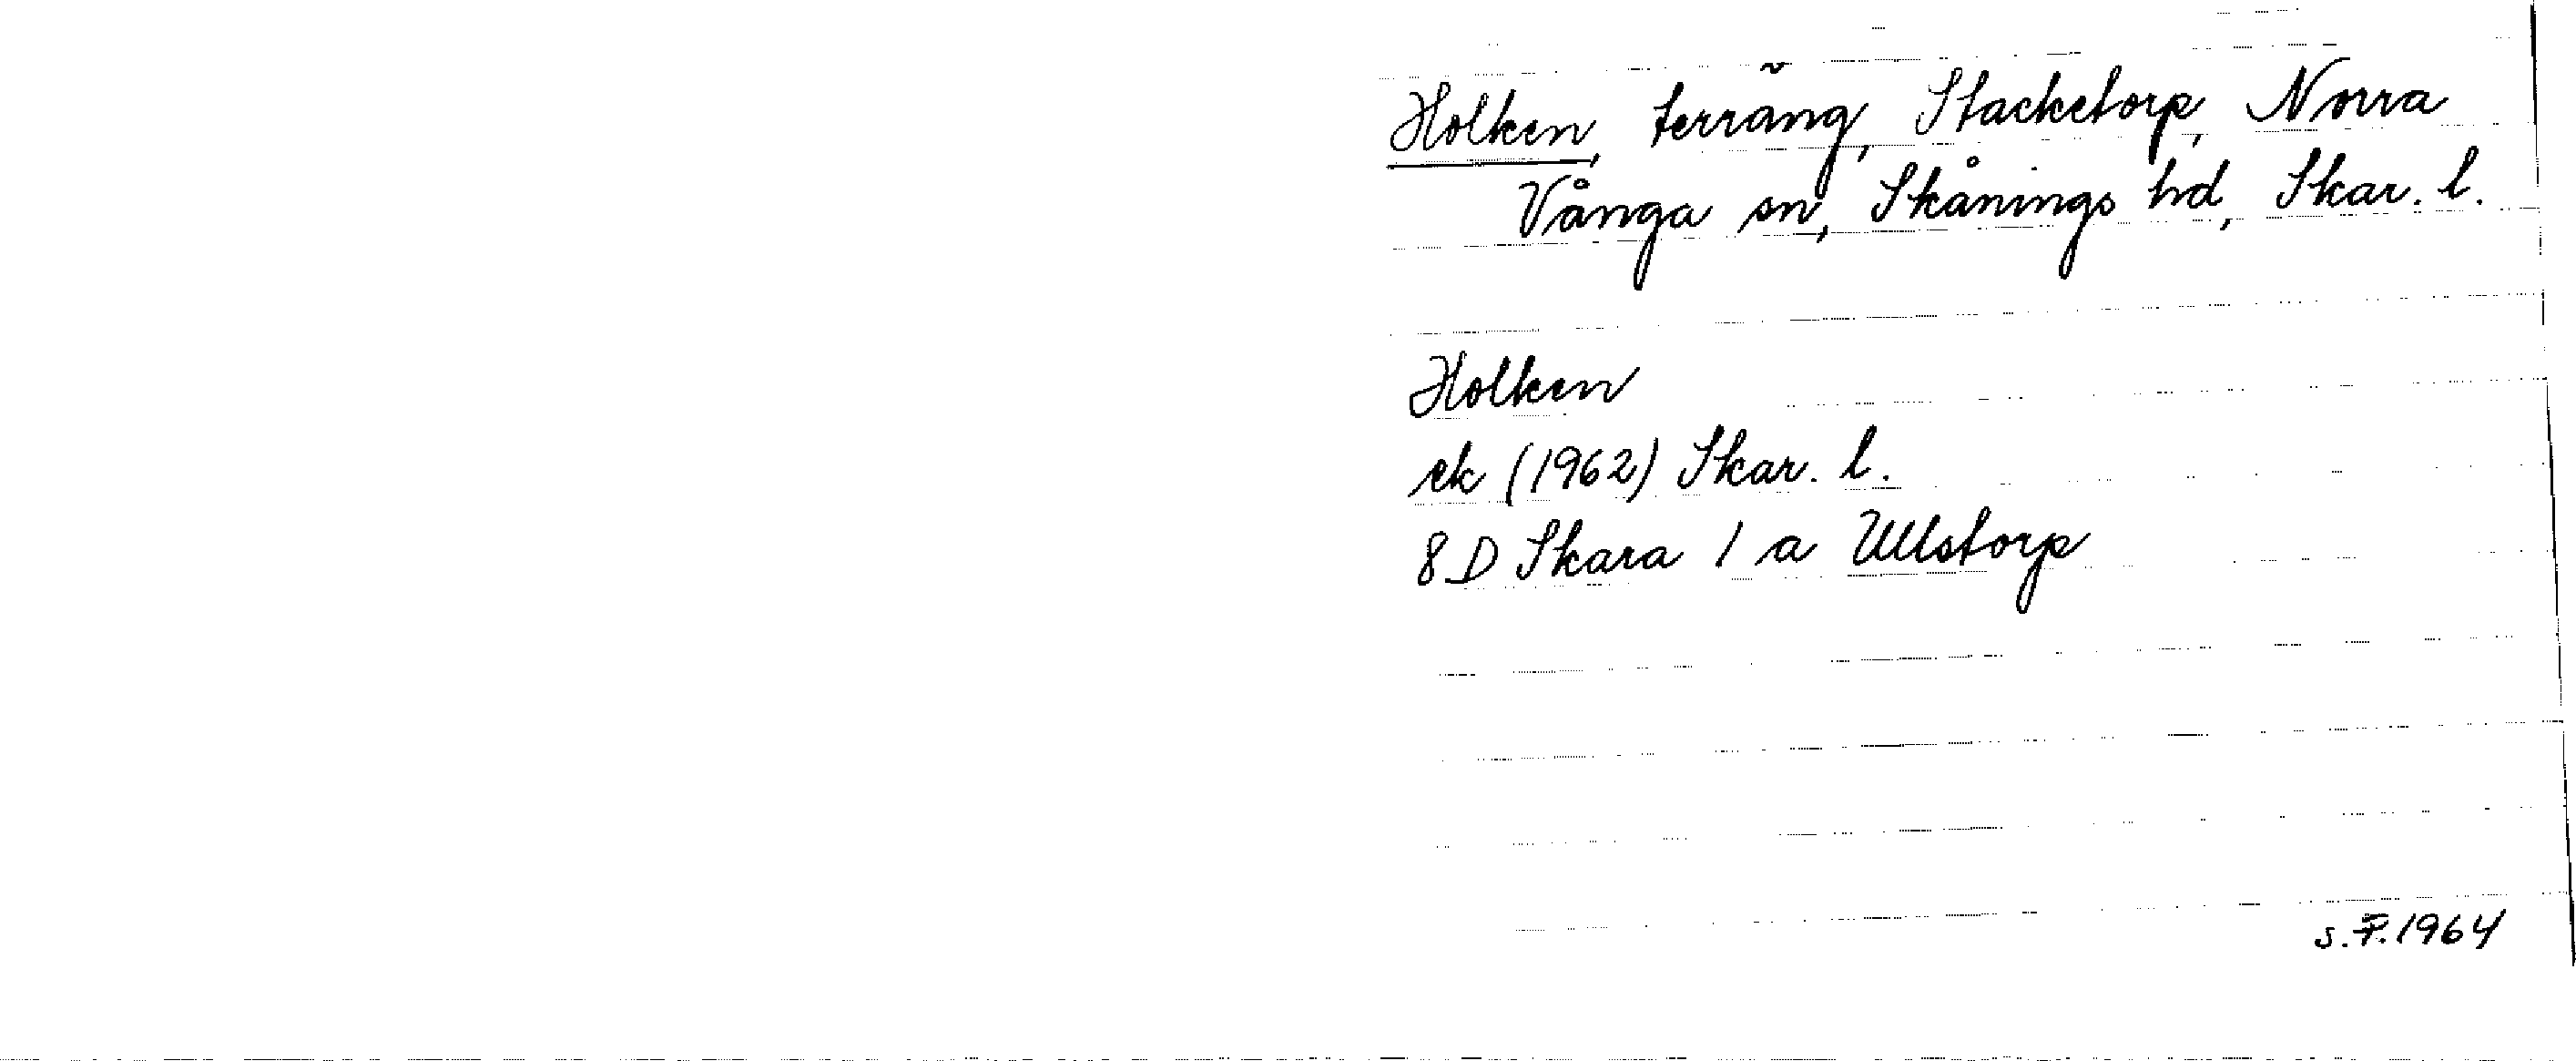 Holken, terräng, Stacketorp, Norra
Vånga sn, Skånings hd, Skar. l.
Holken
ek (1962) Skar. l.
8 D Skara 1 a Ullstorp
S.F. 1964